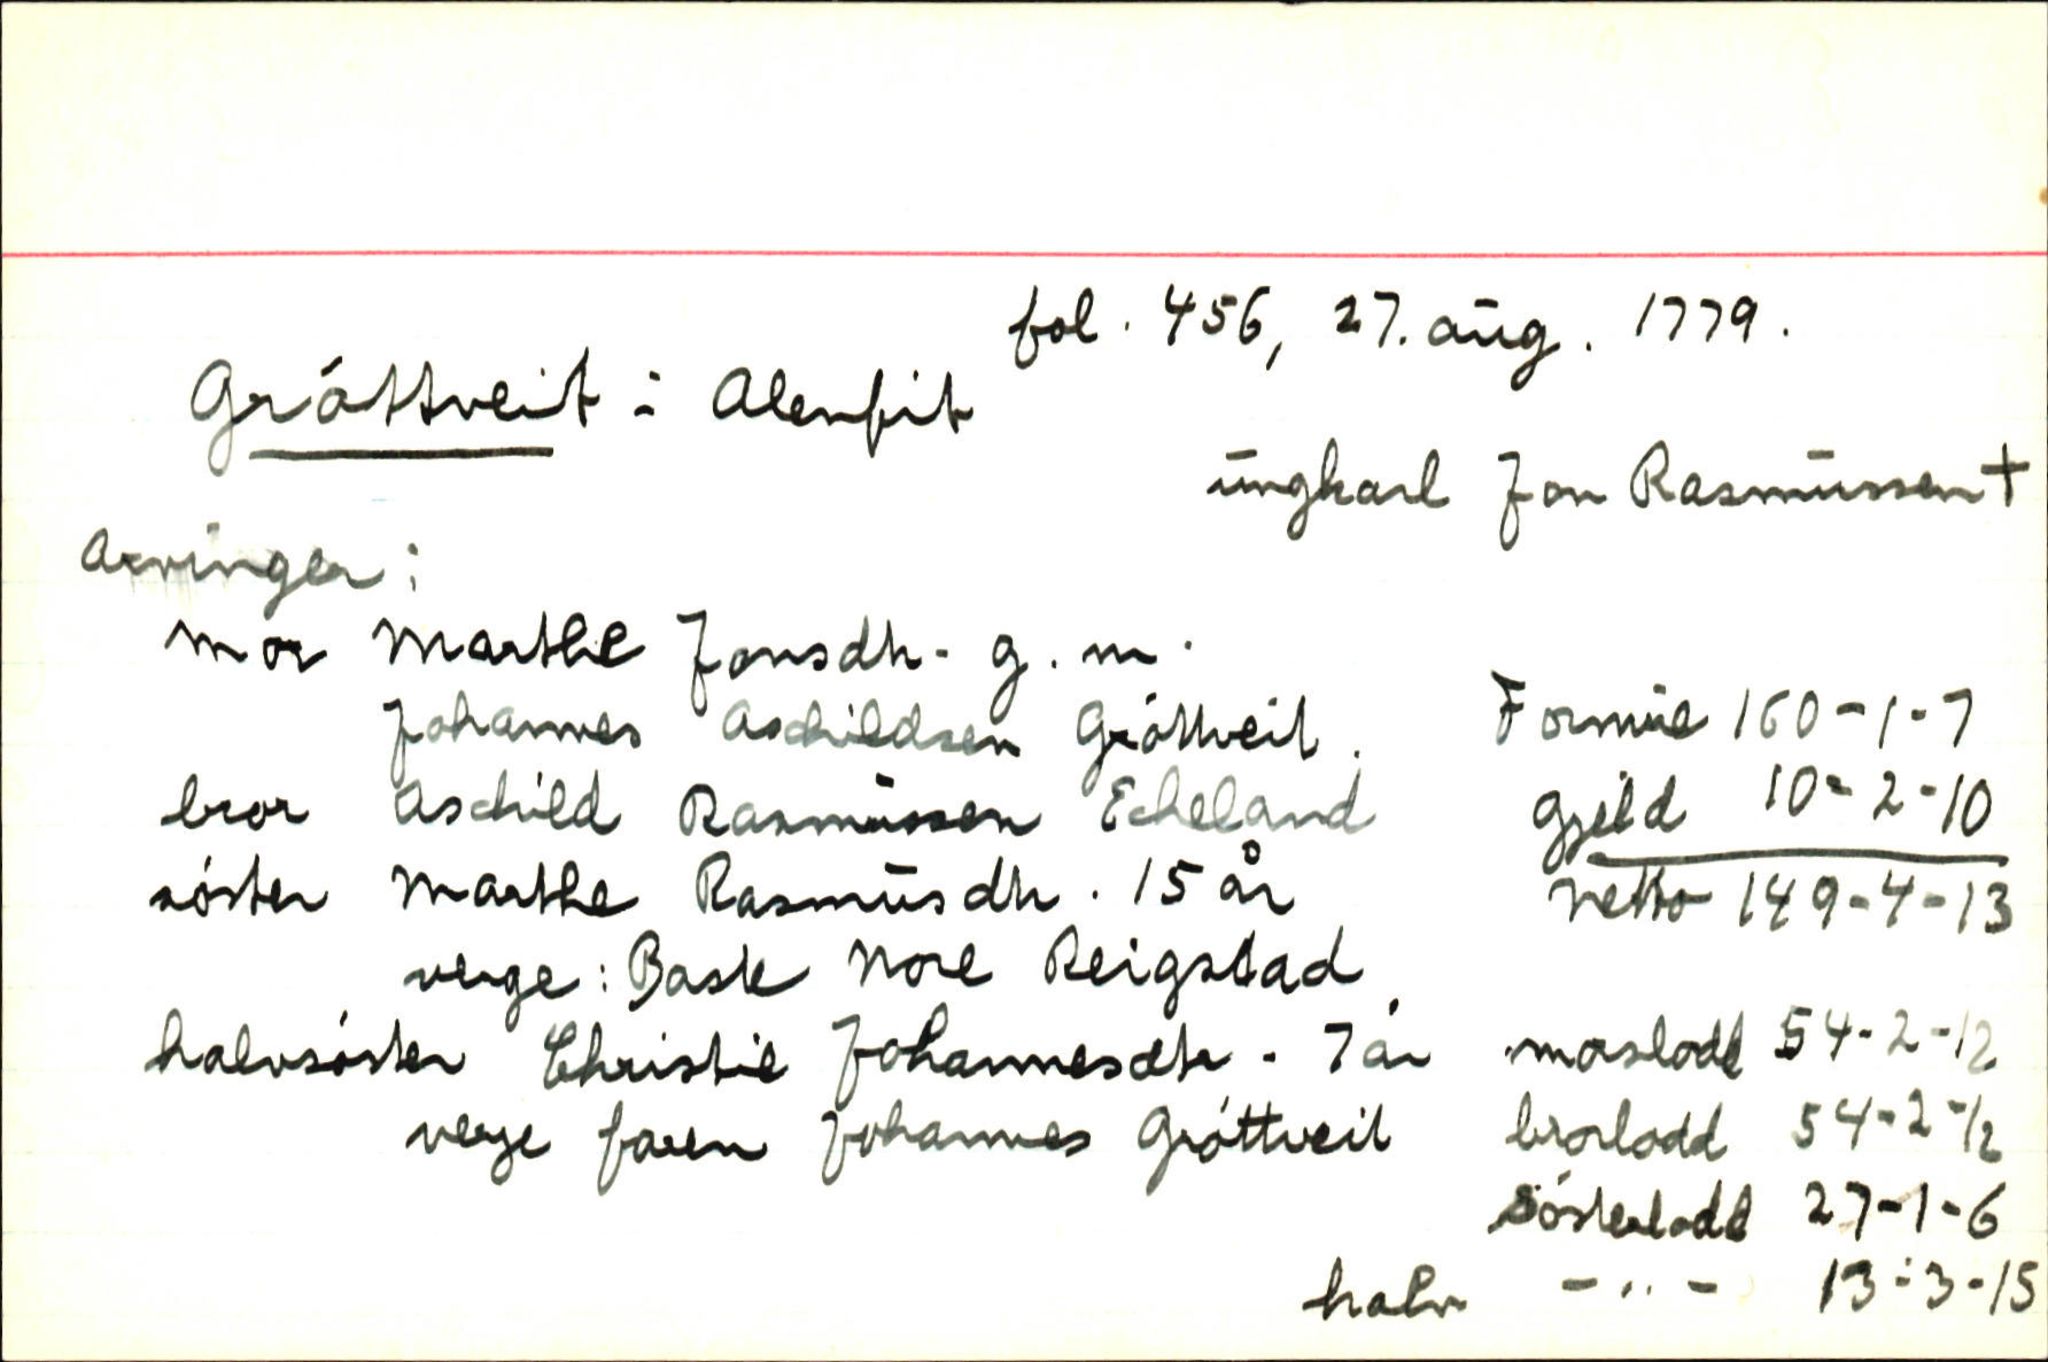 fol. 456, 27. aug. 1779.
Gróttveit i Alenfit
ungkarl Jon Rasmussen †
Arvinger:
mor Marthe Jonsdtr. g. m.
Johannes Aschildsen Gróttveit.
bror Aschild Rasmussen Echeland
sóster Marthe Rasmusdtr. 15 år
verge: Bask Nore Reigstad
halvsóster Christie Johannesdtr - 7 år
verge faren Johannes Gróttveit
Formue 160-1-7
Gjeld 10-2-10
Netto 149-4-13
morslodd 54-2-12
brorlodd 54-2-12
Sósterlodd 27-1-6
halv -"- 13-3-15